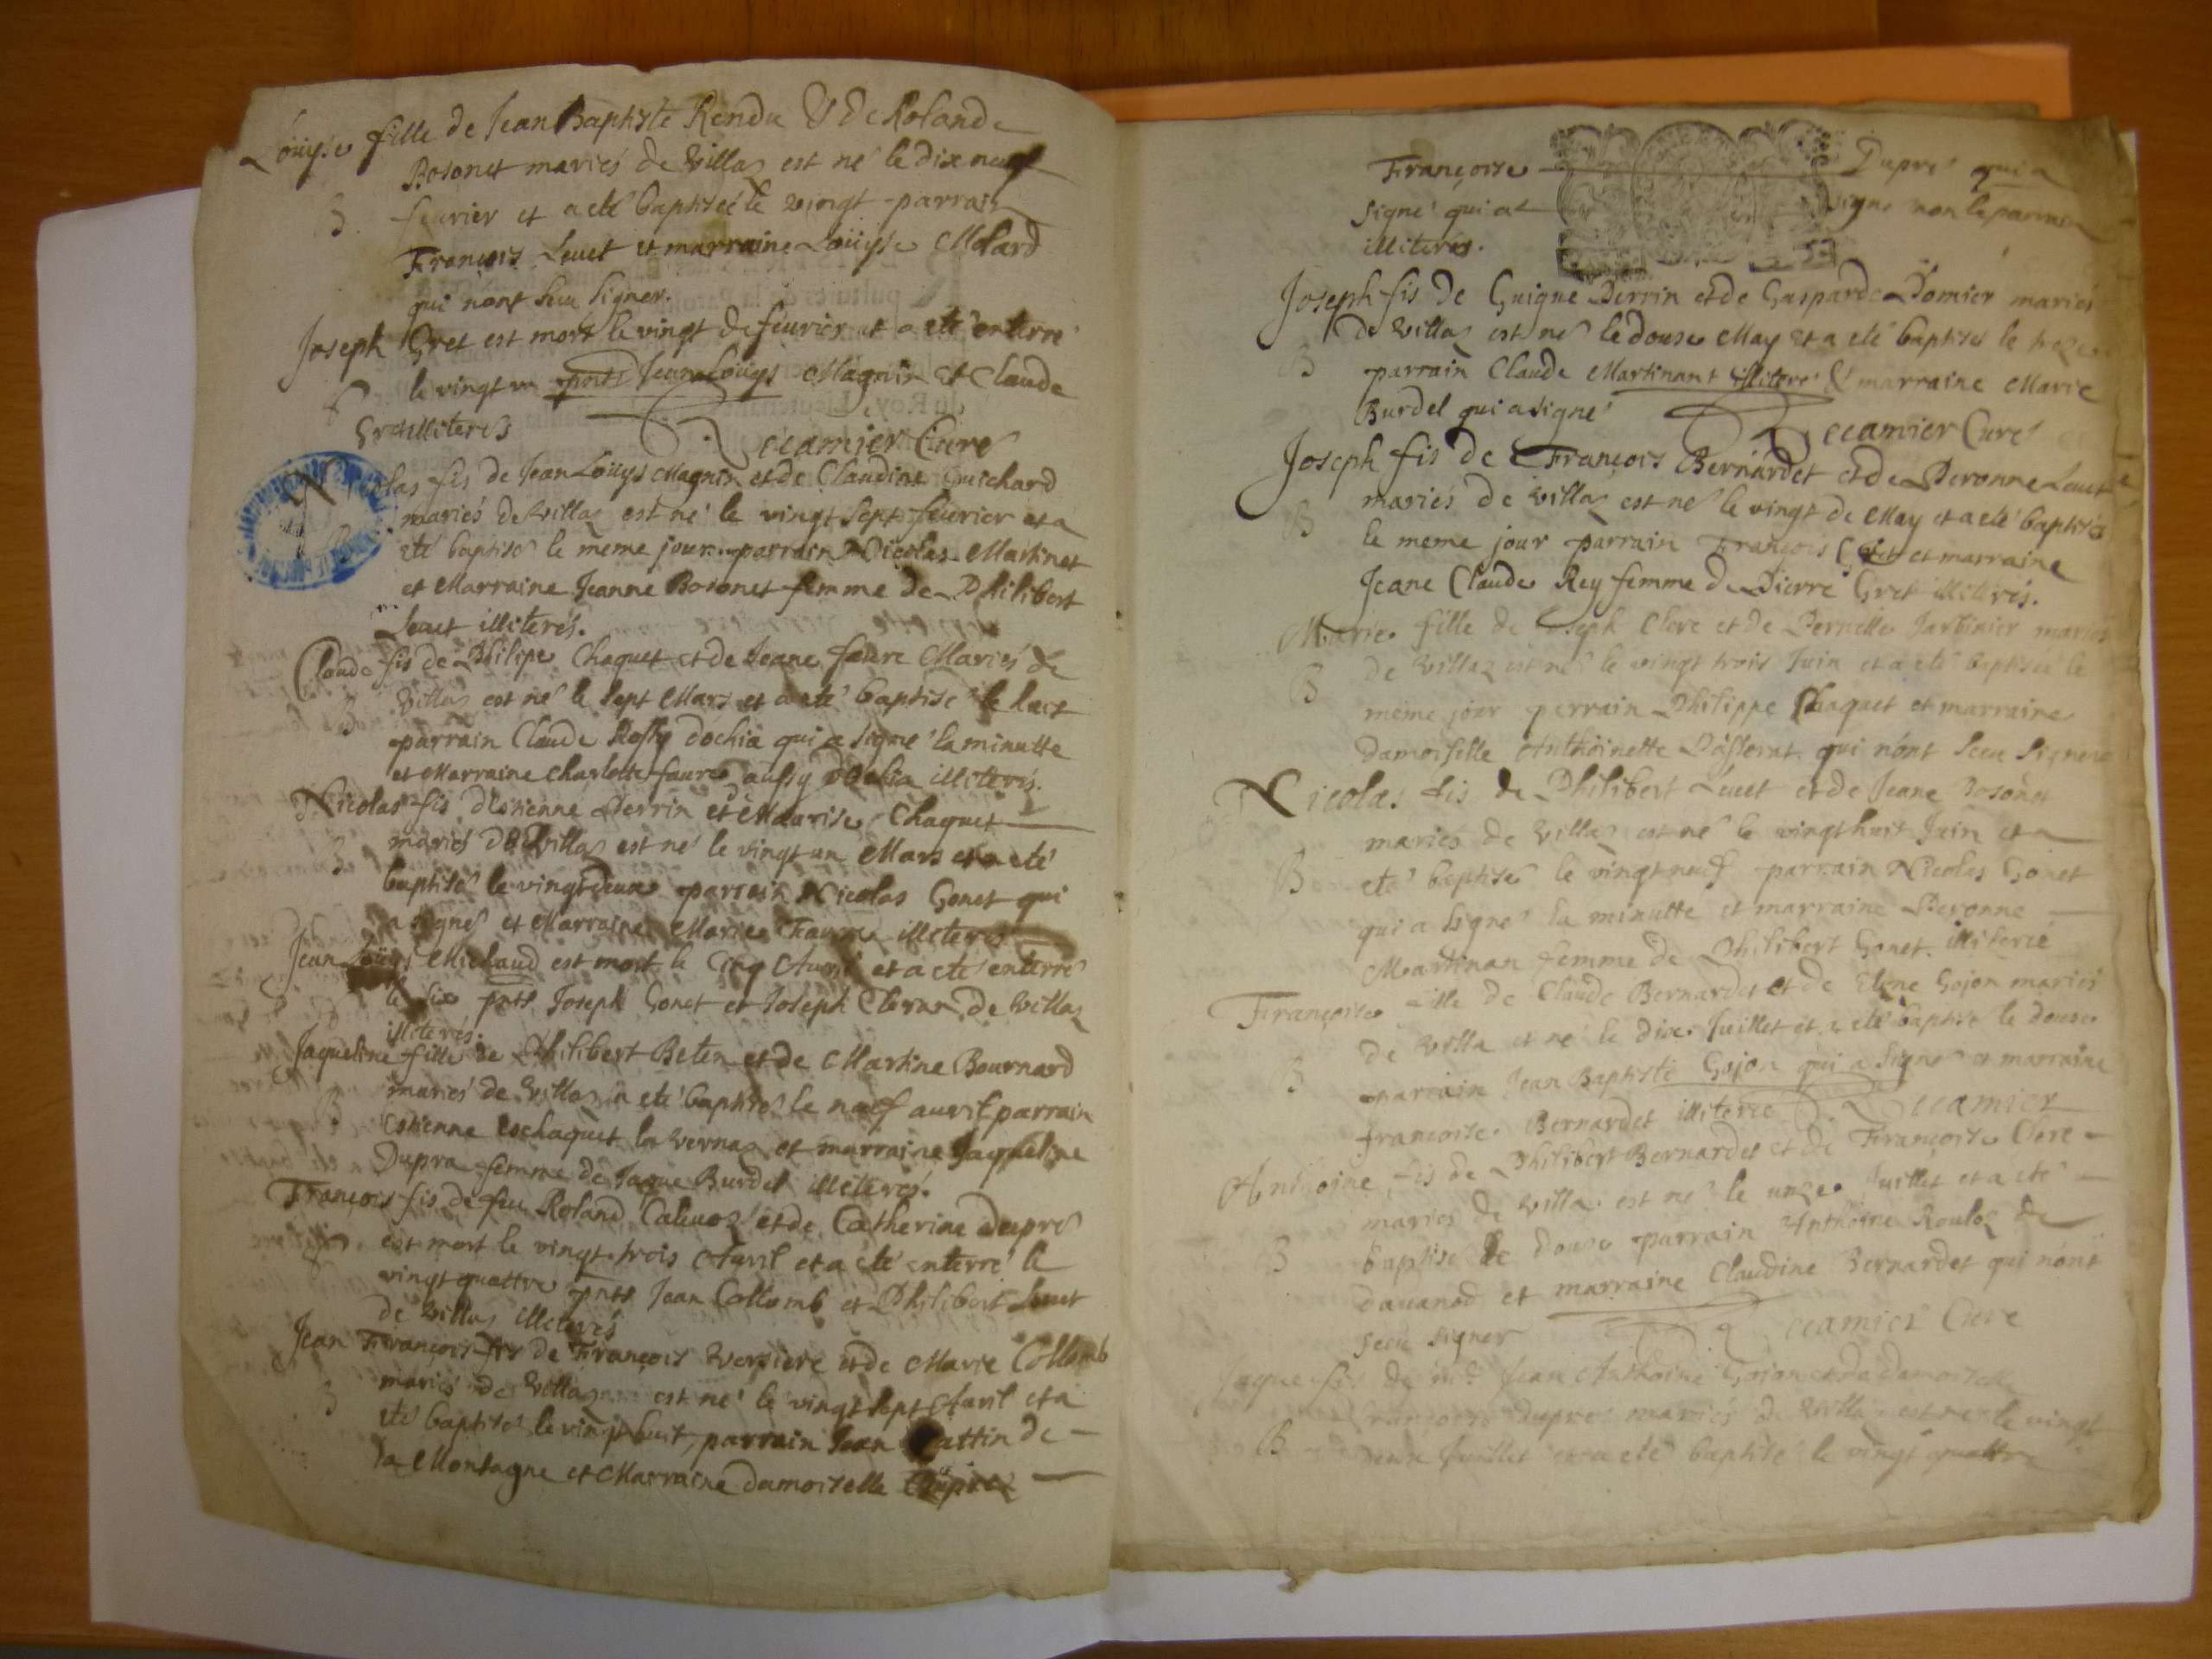 Loüyse fille de Jean Baptiste Rendu & De Rolande
Bosonet mariés de Villaz est né le dix neuf
B fevrier et a eté baptisée le vingt parrain
François Levet et marraine Loüyse Molard
qui nont sceu signer.
Joseph Gret est mort le vingt de fevrier et a eté enterré
le vingt un pnts Jean Loüys Magnin et Claude
Gret illiterés
Decamier Curé
Nicolas fis de Jean Loüys Magnin et de Claudine Guichard
mariés de Villaz est né le vingt sept fevrier et a
eté baptisé le meme jour parrain Nicolas Martinet
et Marraine Jeanne Bosonet femme de Philibert
Levet illiterés.
Claude fis de Philipe Chaquet et de Jeane faure Mariés de
B Villaz est né le sept Mars et a eté baptisé le huit
parrain Claude Rossy dochia qui a signé la minutte
et Marraine Charlotte faure aussy dochia illiterés.
Nicolas fis d'Estienne Perrin et Maurise Chaquet
B mariés De Villaz est né le vingt un Mars et a eté
baptisé le vingt deux parrain Nicolas Gonet qui
a signé et Marraine Marie Faure illiterés
Jean Loüys Michaud est mort le Cinq Avril et a eté enterré
le six pnts Joseph Gonet et Joseph Clerc de Villaz
illiterés.
Jaqueline fille de Philibert Beten et de Martine Bournard
B mariés de Villaz a eté baptisé le neuf avril parrain
Estienne Eschaquet la vernaz et marraine Jaqueline
Dupra femme de Jaque Burdet illiterés.
François fis de feu Roland Caluoz et de Catherine Dupré
est mort le vingt trois Avril et a eté enterré le
vingt quattre pnts Jean Collomb et Philibert Levet
de Villaz illiterés
Jean François fis de François Versiere et de Marie Collomb
B mariés de Villaz est né le vingt sept Avril et a
eté baptisé le vingt huit, parrain Jean de
la Montagne et Marraine damoiselle Dupré
Françoise Dupré qui a
signé qui a signé non le parrain
illiterés.
Joseph fis de Guigue Perrin et de Gasparde Domier mariés
de Villaz est né le douse May et a eté baptisé le treze
B parrain Claude Martinant illiteré & marraine Marie
Burdet qui a signé
Decamier Curé
Joseph fis de François Bernardet et de Peronne Levet
B mariés de Villaz est né le vingt de May et a eté baptisé
le meme jour parrain François Gret et marraine
Jeane Claude Rey femme de Pierre Gret illiterés.
Marie fille de Joseph Clerc et de Pernette Jarbinier mariés
B de Villaz est né le vingt trois Juin et a eté baptisée le
meme jour parrain Philippe Chaquet et marraine
damoiselle Anthoinette qui nont sceu signer
Nicolas fis de Philibert Levet et de Jeane Bosonet
mariés de Villaz est né le vingt huit Juin et a
B eté baptisé le vingt neuf parrain Nicolas Gonet
qui a signé la minutte et marraine Peronne
Martinan femme de Philibert Gonet illiteré
Françoise fille de Claude Bernardet et de Elene Gojon mariés
de Villa et né le dix Juillet et a eté baptisé le douse
B parrain Jean Baptiste Gojon qui a signé et marraine
françoise Bernardet illiterée
Decamier
Anthoine fis de Philibert Bernardet et de Françoise Clerc
mariés de Villa est né le unze Juillet et a eté
B baptisé le douse parrain Anthoine Rouloz de
davanod et marraine Claudine Bernardet qui nont
sceu signer
Decamier Cure
Jaque fis de Jean Anthoine Gojon et de damoiselle
Françoise dupré mariés de Villaz est né le vingt
B deux Juillet et a eté baptisé le vingt quattre